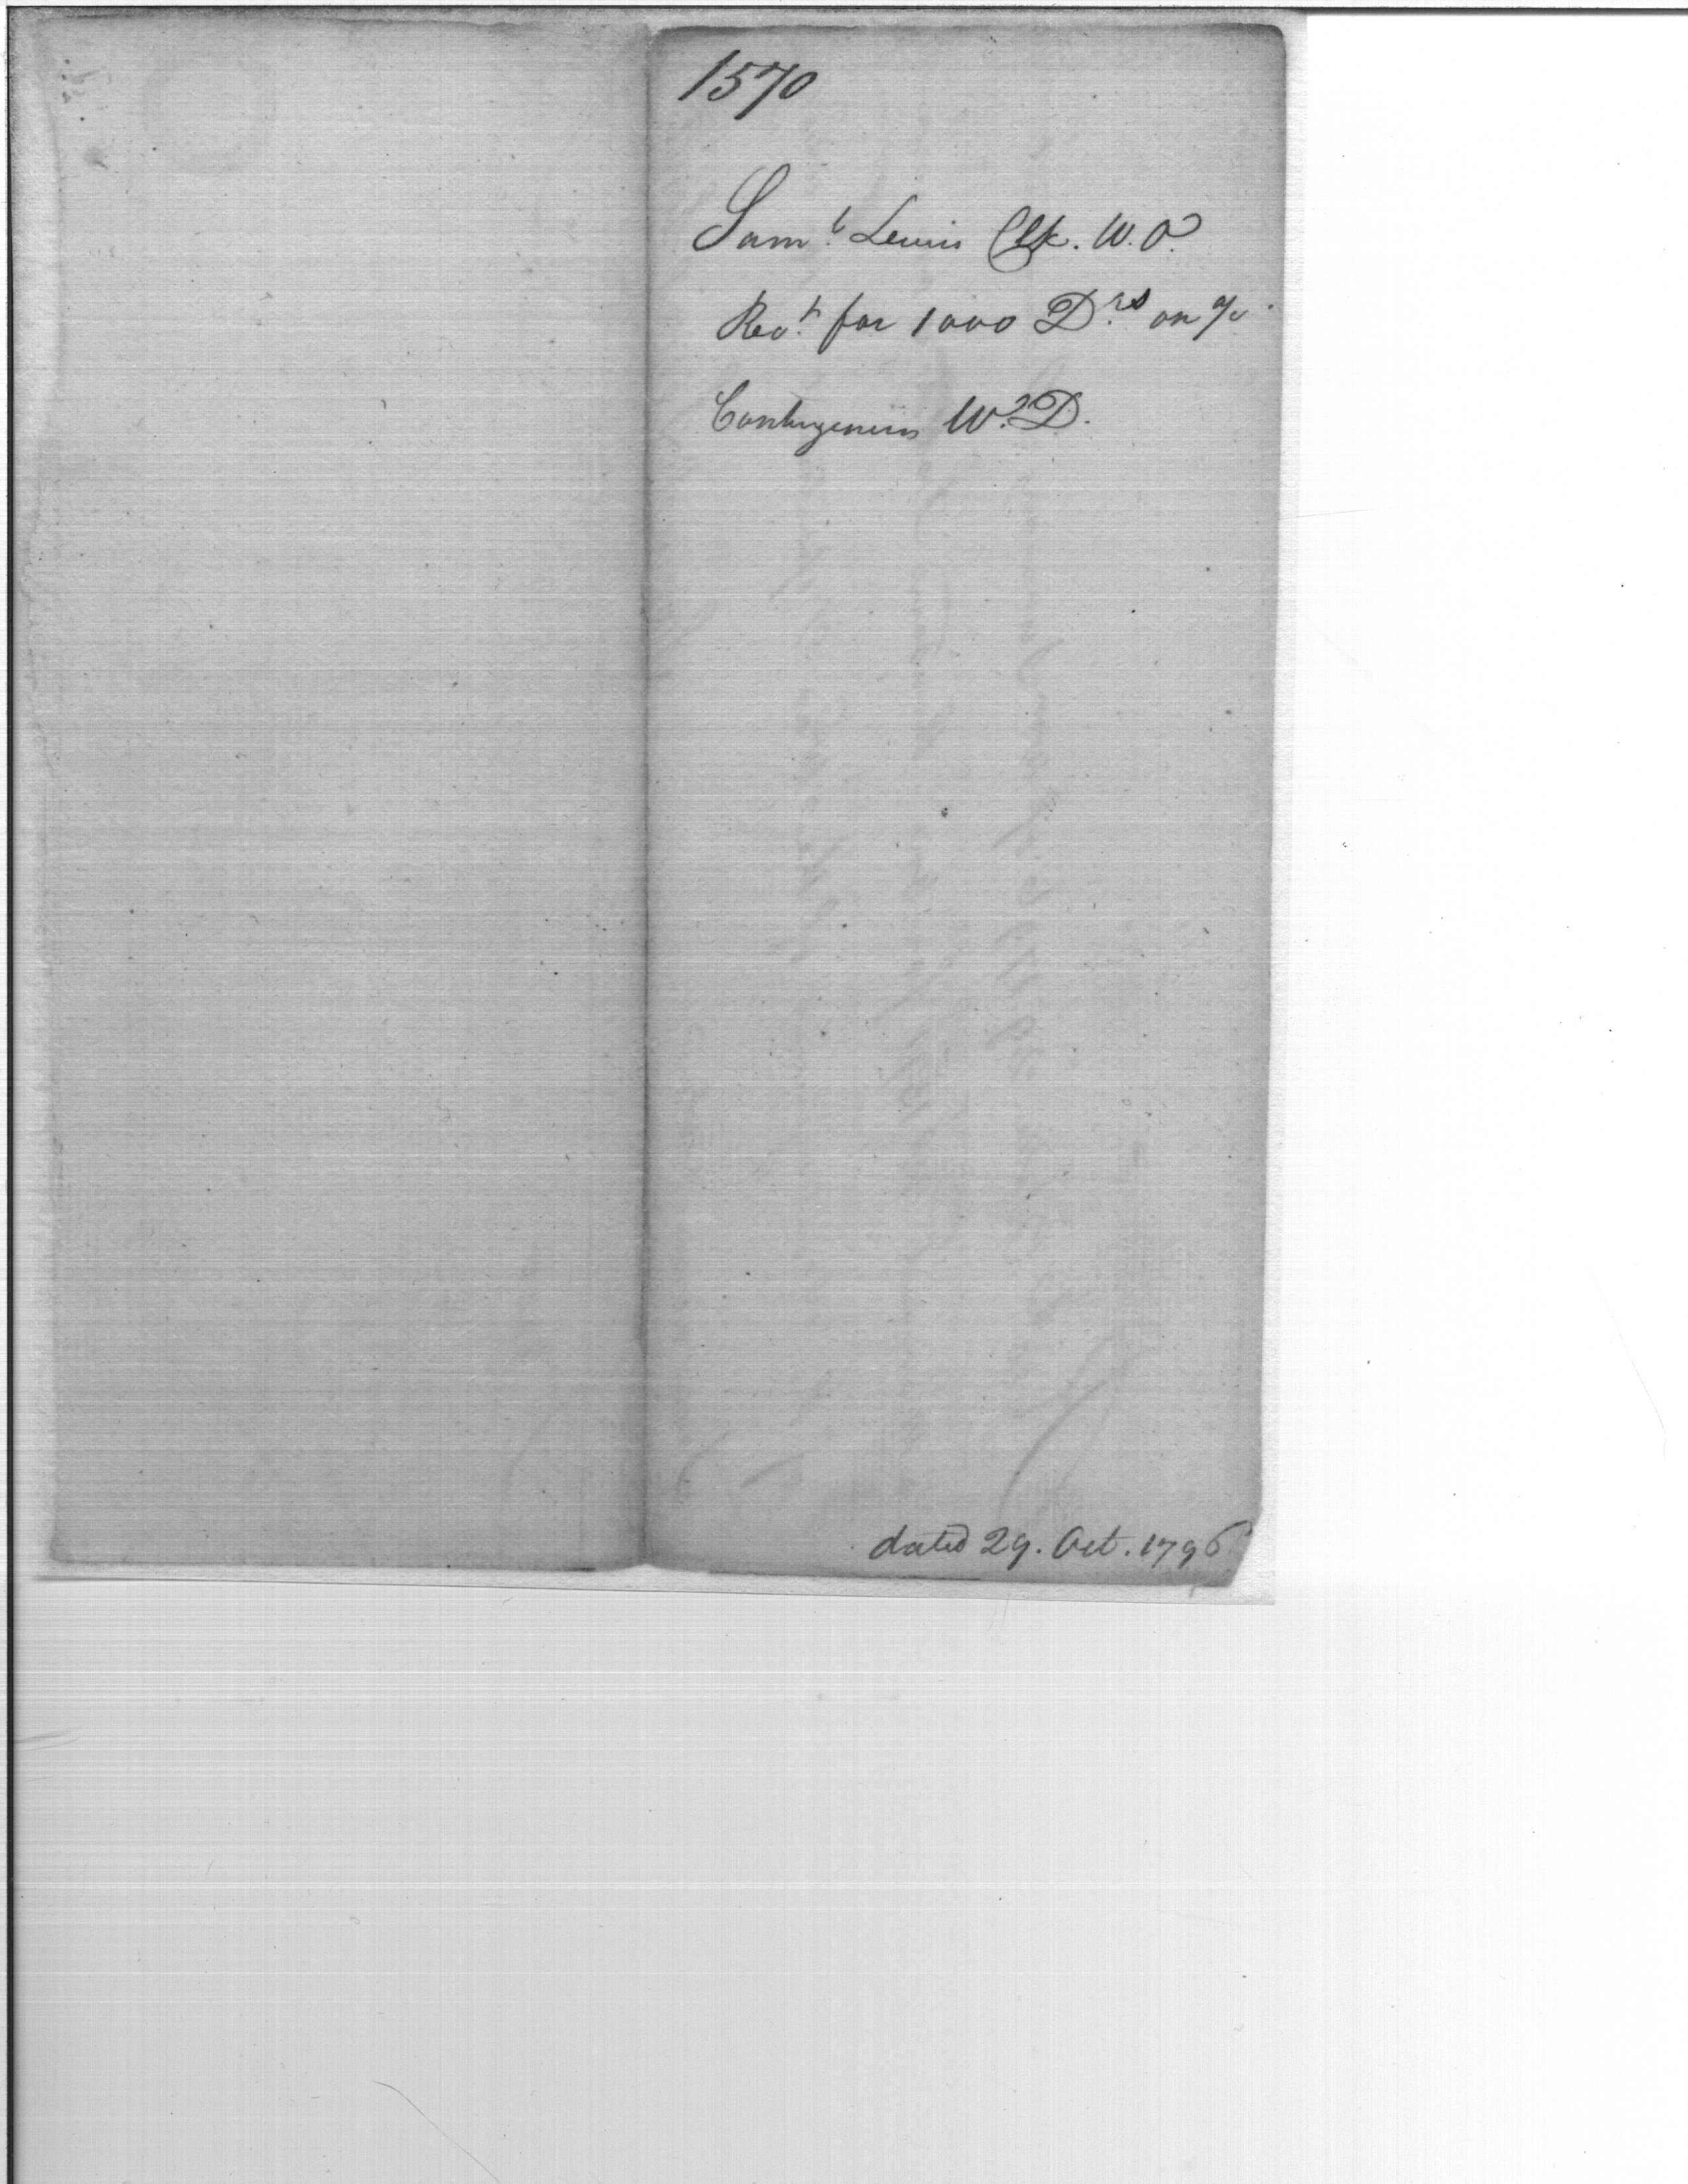 1570
Saml. Lewis Clk. W.O.
Rect. for 1000 Drs on a/c
Contingencies W.D.
dated 29. Oct. 1796